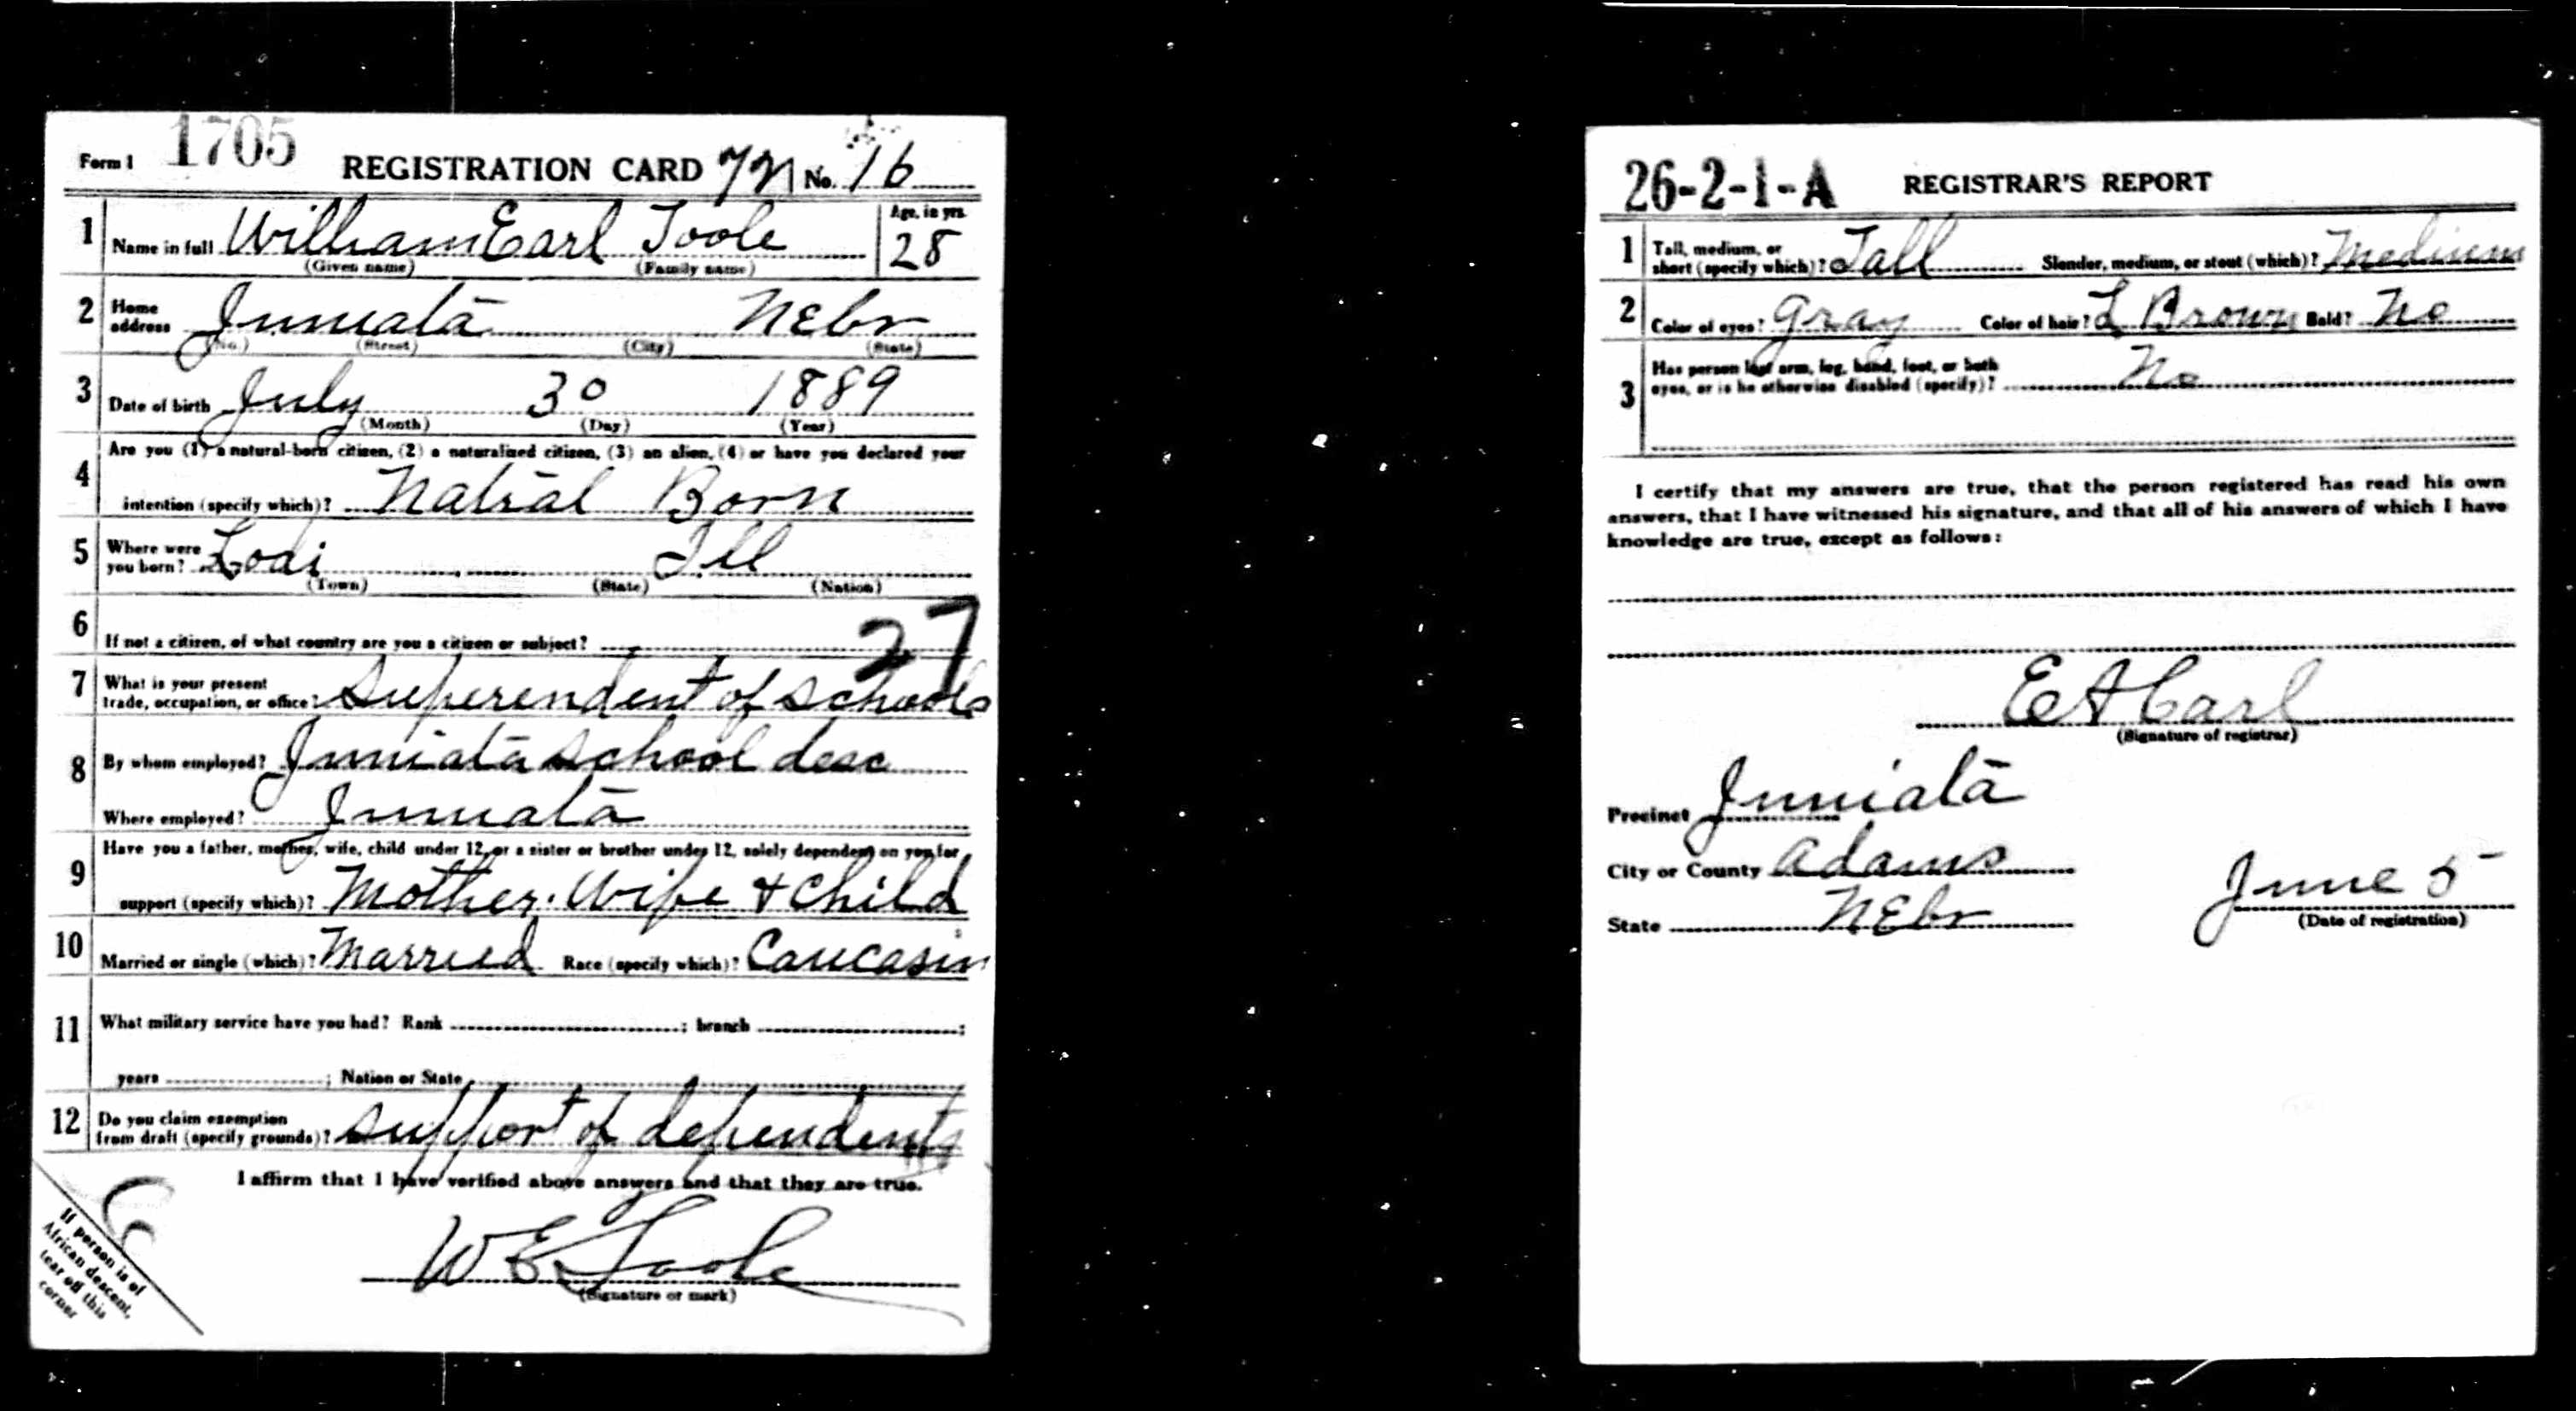 1705
Form 1 REGISTRATION CARD No. 16
1 Name in full William Earl Toole Age, in yrs. 28
(Given name) (Family name)
2 Home address Juniata Nebr
(No.) (Street) (City) (State)
3 Date of birth July 30 1889
(Month) (Day) (Year)
4 Are you (1) a natural-born citizen, (2) a naturalized citizen, (3) an alien, (4) or have you declared your
intention (specify which)? Natral Born
5 Where were you born? Lodi Ill
(Town) (State) (Nation)
6 If not a citizen, of what country are you a citizen or subject?
27
7 What is your present trade, occupation, or office? Superendent of schools
8 By whom employed? Juniata school desc
Where employed? Juniata
9 Have you a father, mother, wife, child under 12, or a sister or brother under 12, solely dependent on you for
support (specify which)? Mother. Wife + Child
10 Married or single (which)? Married Race (specify which)? Caucasin
11 What military service have you had? Rank ; branch ;
years ; Nation or State
12 Do you claim exemption from draft (specify grounds)? Support of dependents
I affirm that I have verified above answers and that they are true.
W E Toole
(Signature or mark)
If person is of
African descent,
tear off this
corner
26-2-1-A REGISTRAR'S REPORT
1 Tall, medium, or short (specify which)? Tall Slender, medium, or stout (which)? Medium
2 Color of eyes? Gray Color of hair? L Brown Bald? No
3 Has person lost arm, leg, hand, foot, or both
eyes, or is he otherwise disabled (specify)? No
I certify that my answers are true, that the person registered has read his own
answers, that I have witnessed his signature, and that all of his answers of which I have
knowledge are true, except as follows:
E A Carl
(Signature of registrar)
Precinct Juniata
City or County Adams
State Nebr June 5
(Date of registration)